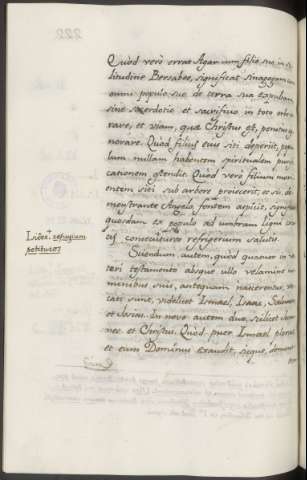 Quod verò errat Agar cum filio suo in so-
litudine Bersabee, significat Sinagogam cum
omni populo suo de terra sua expulsam
sine sacerdotio et sacrificio in toto orbe
rare, et viam, quæ Christus est, penitus ig-
norare. Quod filius eius siti deperit, popu-
lum nullam habentem spiritualem purifi-
cationem ostendit. Quod verò filium mori-
entem siti sub arbore proiecerit, et sic, de-
monstrante Angelo fontem aspicit, significat
quosdam ex populo ad umbram ligni cru-
cis consecuturos refrigerium salutis.
refugium
petituros
Sciendum autem, quod quatuor in ve-
teri testamento absque ullo velamine no-
minibus suis, antequam nascerentur, vo-
cati sunt, videlicet Ismael, Isaac, Salomon
et Iosias. In novo autem duo, scilicet Ioan-
nes et Christus. Quòd puer Ismael plorat
et eum Dominus exaudit,